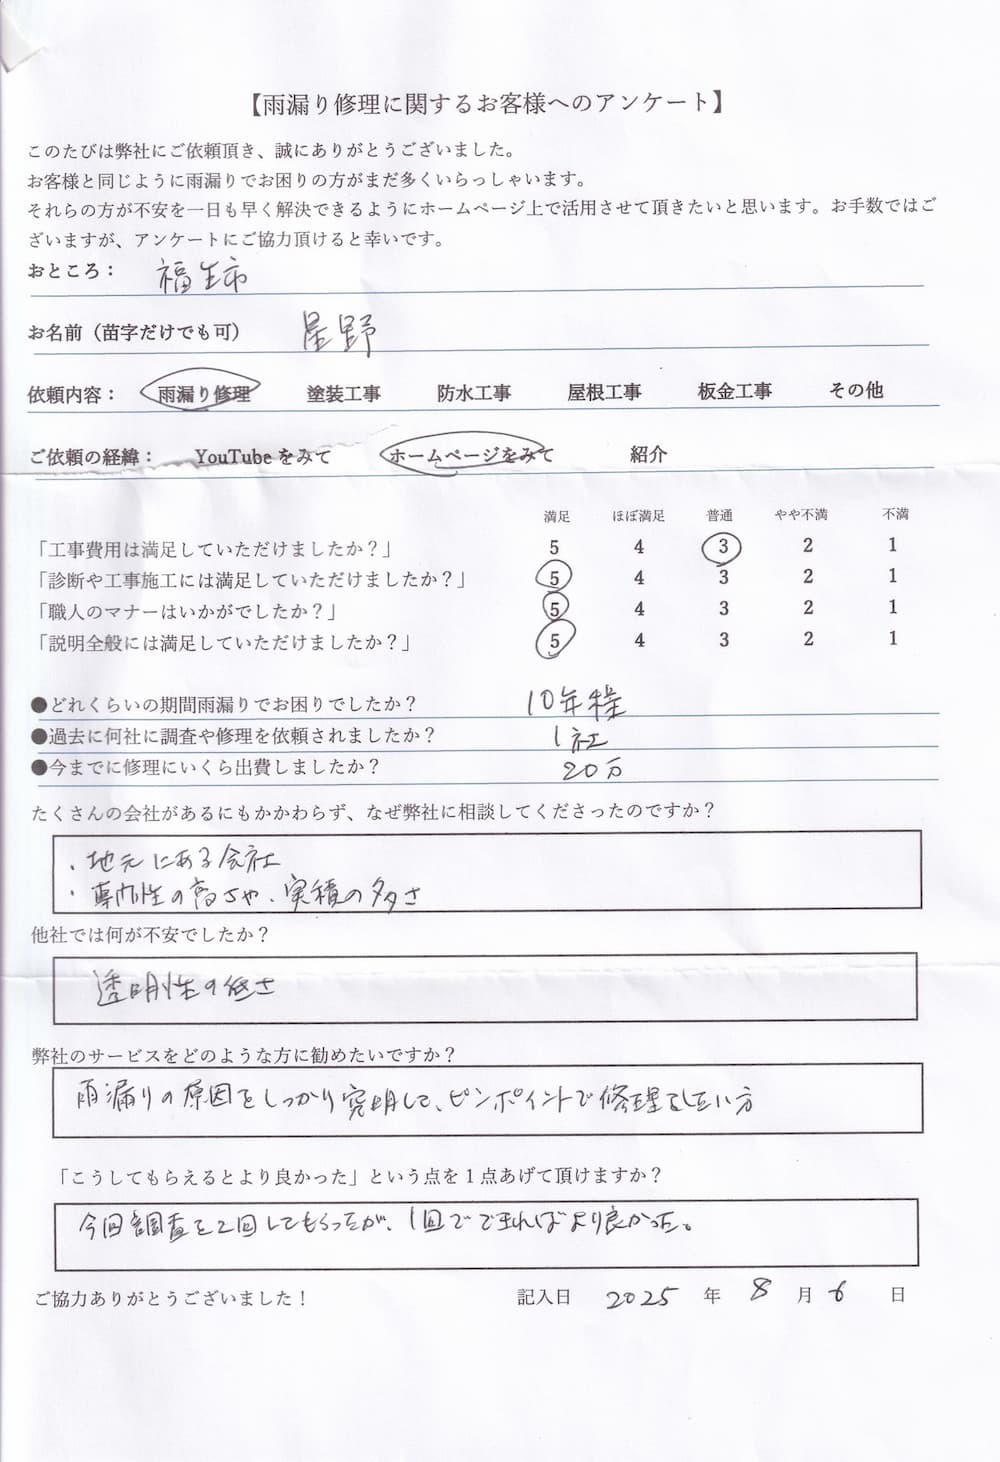 【雨漏り修理に関するお客様へのアンケート】
このたびは弊社にご依頼頂き、誠にありがとうございました。
お客様と同じように雨漏りでお困りの方がまだ多くいらっしゃいます。
それらの方が不安を一日も早く解決できるようにホームページ上で活用させて頂きたいと思います。お手数ではご
ざいますが、アンケートにご協力頂けると幸いです。
おところ： 福生市
お名前（苗字だけでも可） 星野
依頼内容： 雨漏り修理 塗装工事 防水工事 屋根工事 板金工事 その他
ご依頼の経緯： YouTubeをみて ホームページをみて 紹介
満足 ほぼ満足 普通 やや不満 不満
「工事費用は満足していただけましたか？」 5 4 3 2 1
「診断や工事施工には満足していただけましたか？」 5 4 3 2 1
「職人のマナーはいかがでしたか？」 5 4 3 2 1
「説明全般には満足していただけましたか？」 5 4 3 2 1
●どれくらいの期間雨漏りでお困りでしたか？ 10年程
●過去に何社に調査や修理を依頼されましたか？ 1社
●今までに修理にいくら出費しましたか？ 20万
たくさんの会社があるにもかかわらず、なぜ弊社に相談してくださったのですか？
・地元にある会社
・専門性の高さや、実積の多さ
他社では何が不安でしたか？
透明性の低さ
弊社のサービスをどのような方に勧めたいですか？
雨漏りの原因をしっかり究明して、ピンポイントで修理をしたい方
「こうしてもらえるとより良かった」という点を１点あげて頂けますか？
今回調査を2回してもらったが、1回でできればより良かった。
ご協力ありがとうございました！ 記入日 2025 年 8 月 6 日